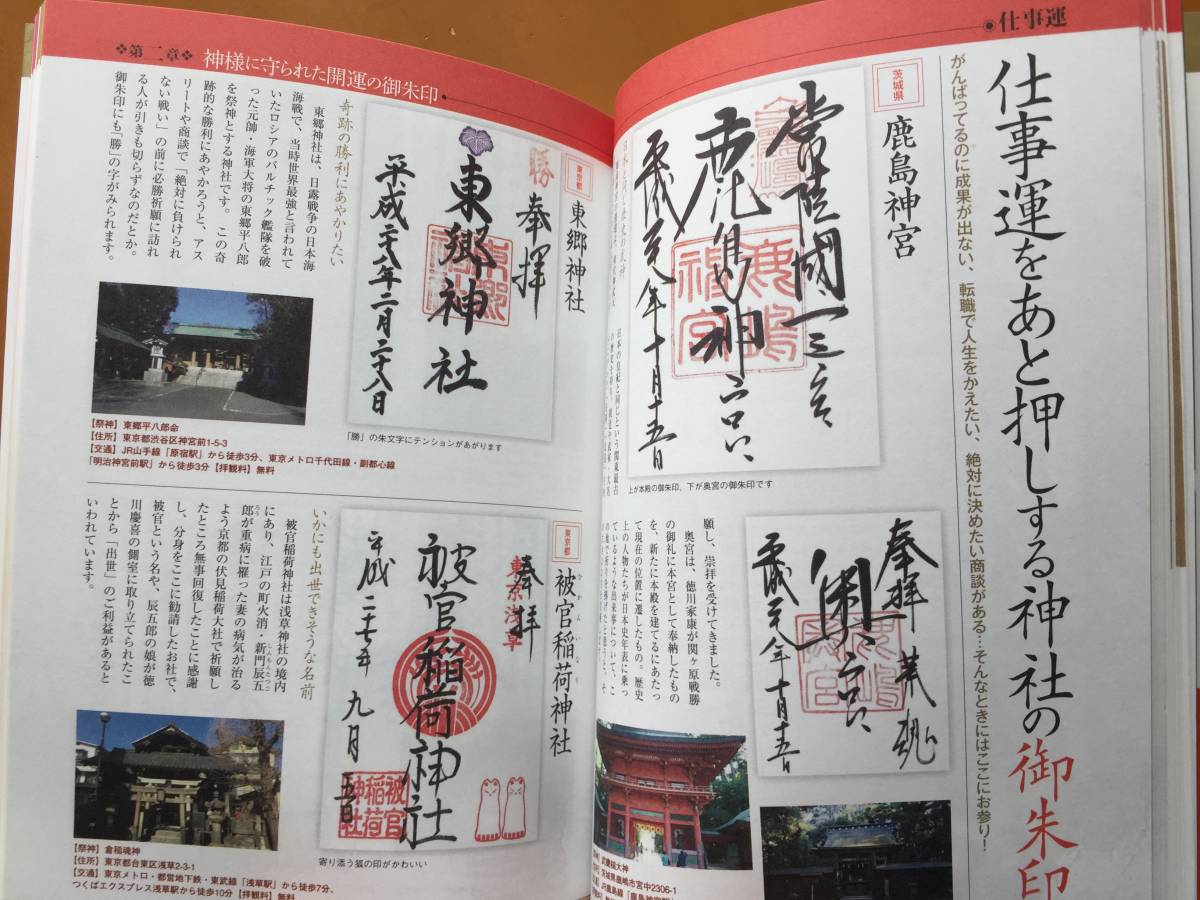 仕事運
仕事運をあと押しする神社の御朱印
がんばってるのに成果が出ない、転職で人生をかえたい、絶対に決めたい商談がある…そんなときにはここにお参り!
茨城県
鹿島神宮
上が本殿の御朱印、下が奥宮の御朱印です
願し、崇拝を受けてきました。
奥宮は、徳川家康が関ヶ原戦勝
の御礼に本宮として奉納したもの
を、新たに本殿を建てるにあたっ
て現在の位置に遷したもの。歴史
上の人物たちが日本史年表に乗っ
ているような出来事について、こ
奉拝
武甕槌大神
茨城県鹿嶋市宮中2306-1
第二章
神様に守られた開運の御朱印
東京都
東郷神社
勝
奉拝
東郷神社
平成二十八年二月二十八日
「勝」の朱文字にテンションがあがります
奇跡の勝利にあやかりたい
東郷神社は、日露戦争の日本海
海戦で、当時世界最強と言われて
いたロシアのバルチック艦隊を破
った元帥・海軍大将の東郷平八郎
を祭神とする神社です。この奇
跡的な勝利にあやかろうと、アス
リートや商談で「絶対に負けられ
ない戦い」の前に必勝祈願に訪れ
る人が引きも切らずなのだとか。
御朱印にも「勝」の字がみられます。
【祭神】東郷平八郎命
【住所】東京都渋谷区神宮前1-5-3
【交通】JR山手線「原宿駅」から徒歩3分、東京メトロ千代田線・副都心線
「明治神宮前駅」から徒歩3分【拝観料】無料
東京都
被官稲荷神社
ひかんいなり
奉拝
東京浅草
被官稲荷神社
平成二十七年九月
被官稲荷神社
寄り添う狐の印がかわいい
いかにも出世できそうな名前
被官稲荷神社は浅草神社の境内
にあり、江戸の町火消・新門辰五
郎が重病に罹った妻の病気が治る
よう京都の伏見稲荷大社で祈願し
たところ無事回復したことに感謝
し、分身をここに勧請したお社で、
被官という名や、辰五郎の娘が徳
川慶喜の側室に取り立てられたこ
とから「出世」のご利益があると
いわれています。
【祭神】倉稲魂神
【住所】東京都台東区浅草2-3-1
【交通】東京メトロ・都営地下鉄・東武線「浅草駅」から徒歩7分、
つくばエクスプレス浅草駅から徒歩10分【拝観料】無料